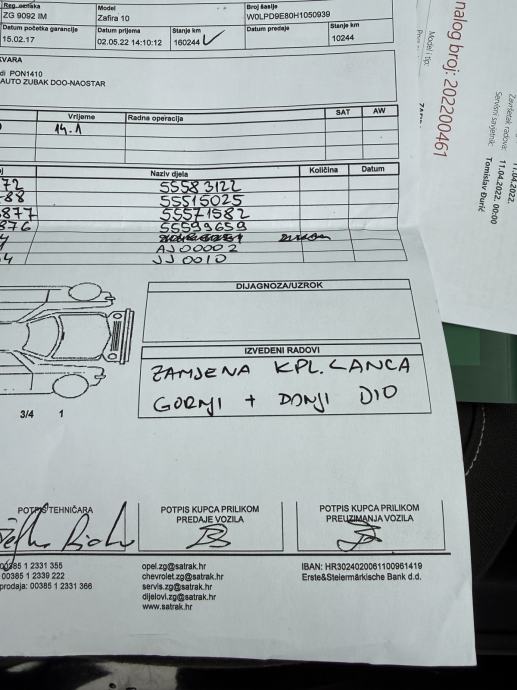 Reg. oznaka Model Broj šasije
ZG 9092 IM Zafira 10 W0LPD9E80H1050939
Datum početka garancije Datum prijema Stanje km Datum predaje Stanje km
15.02.17 02.05.22 14:10:12 160244 10244
KVARA
di PON1410
AUTO ZUBAK DOO-NAOSTAR
Vrijeme Radna operacija SAT AW
14.1
Naziv djela Količina Datum
72 55583122
88 55515025
3877 55571582
876 55599659
AJ00002
4 JJ0010
DIJAGNOZA/UZROK
IZVEDENI RADOVI
ZAMJENA KPL. LANCA
GORNJI + DONJI DIO
3/4 1
POTPIS TEHNIČARA
POTPIS KUPCA PRILIKOM
PREDAJE VOZILA
POTPIS KUPCA PRILIKOM
PREUZIMANJA VOZILA
00385 1 2331 355
00385 1 2339 222
prodaja: 00385 1 2331 366
opel.zg@satrak.hr
chevrolet.zg@satrak.hr
servis.zg@satrak.hr
dijelovi.zg@satrak.hr
www.satrak.hr
IBAN: HR3024020061100961419
Erste&Steiermärkische Bank d.d.
nalog broj: 202200461
Model i tip:
Završetak radova: 11.04.2022.
11.04.2022. 00:00
Servisni savjetnik: Tomislav Đurić